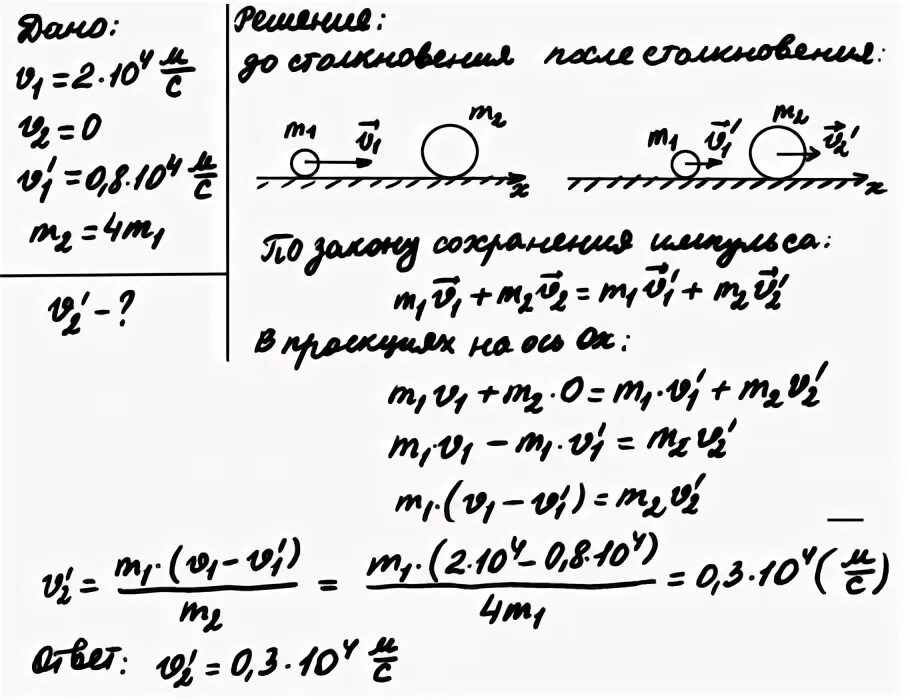 Дано:
υ₁ = 2·10⁴ м/с
υ₂ = 0
υ₁' = 0,8·10⁴ м/с
m₂ = 4m₁
υ₂' – ?
Решение:
до столкновения после столкновения:
m₁ υ⃗₁ m₂ x
m₁ υ⃗₁' m₂ υ⃗₂' x
По закону сохранения импульса:
m₁υ⃗₁ + m₂υ⃗₂ = m₁υ⃗₁' + m₂υ⃗₂'
В проекциях на ось Ox:
m₁υ₁ + m₂·0 = m₁·υ₁' + m₂υ₂'
m₁·υ₁ – m₁·υ₁' = m₂υ₂'
m₁·(υ₁ – υ₁') = m₂υ₂'
υ₂' = m₁·(υ₁ – υ₁')/m₂ = m₁·(2·10⁴ – 0,8·10⁴)/4m₁ = 0,3·10⁴ (м/с)
Ответ: υ₂' = 0,3·10⁴ м/с